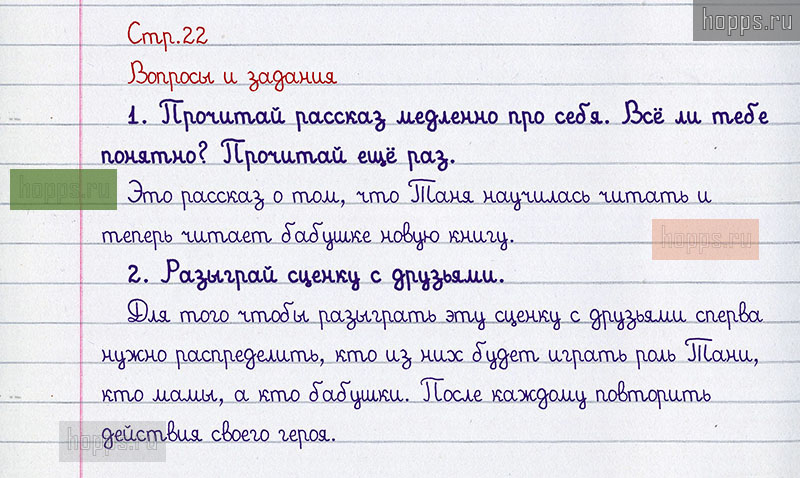 hopps.ru
Стр.22
Вопросы и задания
1. Прочитай рассказ медленно про себя. Всё ли тебе
понятно? Прочитай ещё раз.
hopps.ru
Это рассказ о том, что Таня научилась читать и
теперь читает бабушке новую книгу.
hopps.ru
2. Разыграй сценку с друзьями.
Для того чтобы разыграть эту сценку с друзьями сперва
нужно распределить, кто из них будет играть роль Тани,
кто мамы, а кто бабушки. После каждому повторить
действия своего героя.
hopps.ru